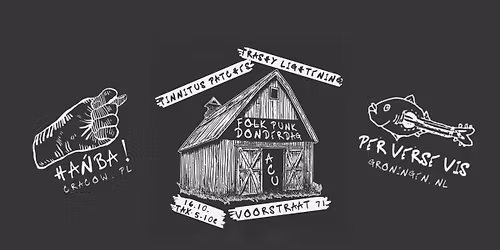 TRASHY LIGHTNING
TINNITUS PATCHES
FOLK PUNK
DONDERDAG
ACU
HAŃBA!
CRACOW. PL
PERVERSE VIS
GRONINGEN. NL
16.10.
TAK 5-10€
VOORSTRAAT 71